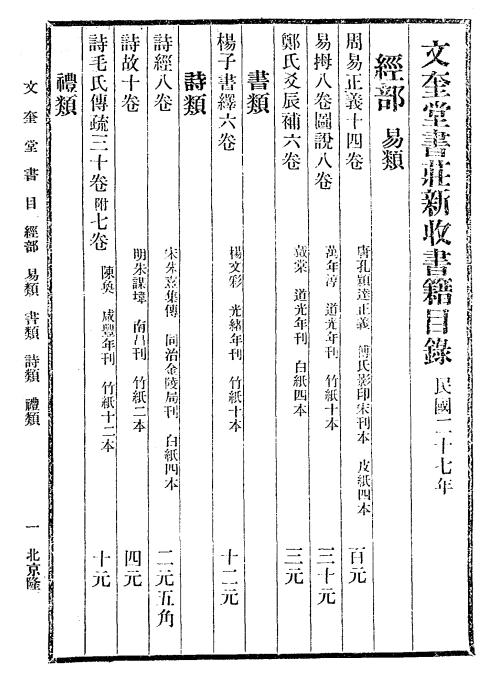 文奎堂書莊新收書籍目錄 民國二十七年
經部 易類
周易正義十四卷 唐孔穎達正義 傅氏影印宋刊本 皮紙四本 百元
易拇八卷圖說八卷 萬年淳 道光年刊 竹紙十本 三十元
鄭氏爻辰補六卷 戴棠 道光年刊 白紙四本 三元
書類
楊子書繹六卷 楊文彩 光緒年刊 竹紙十本 十二元
詩類
詩經八卷 宋朱熹集傳 同治金陵局刊 白紙四本 二元五角
詩故十卷 明朱謀㙔 南昌刊 竹紙二本 四元
詩毛氏傳疏三十卷附七卷 陳奐 咸豐年刊 竹紙十二本 十元
禮類
文奎堂書目 經部 易類 書類 詩類 禮類 一 北京隆